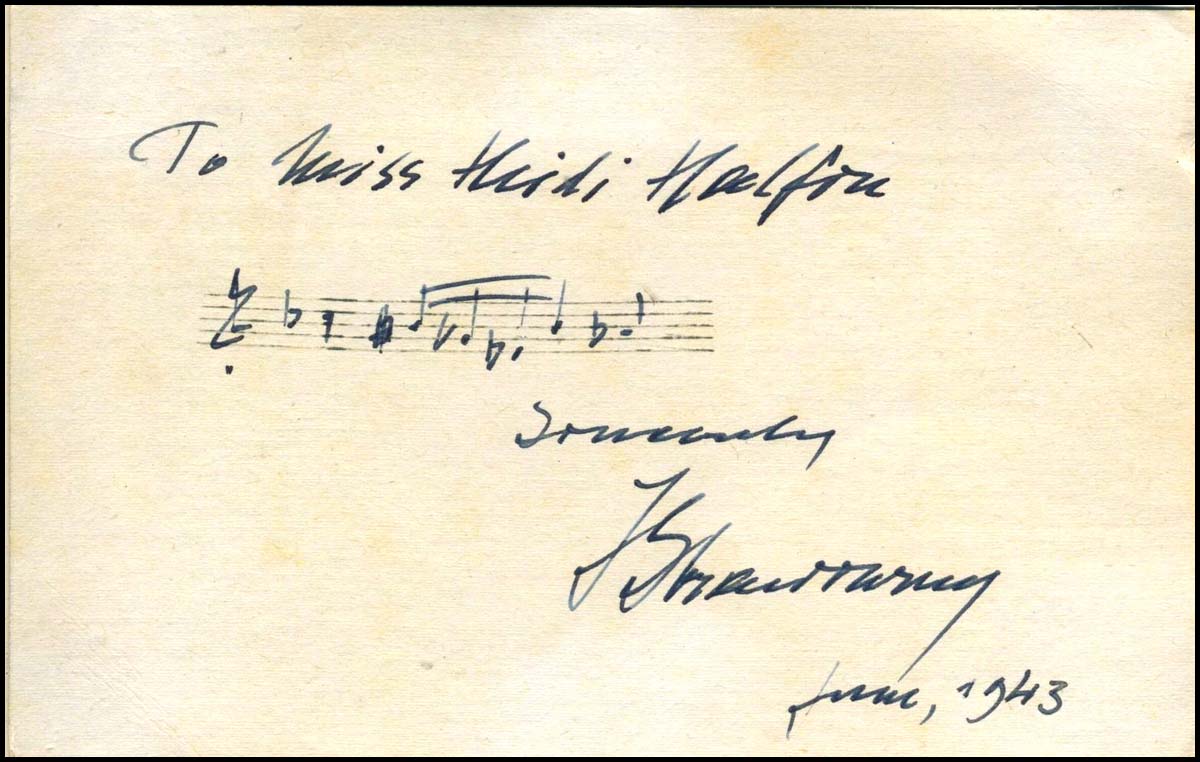 To Miss Heidi Halfon
Sincerely
I Strawinsky
June, 1943